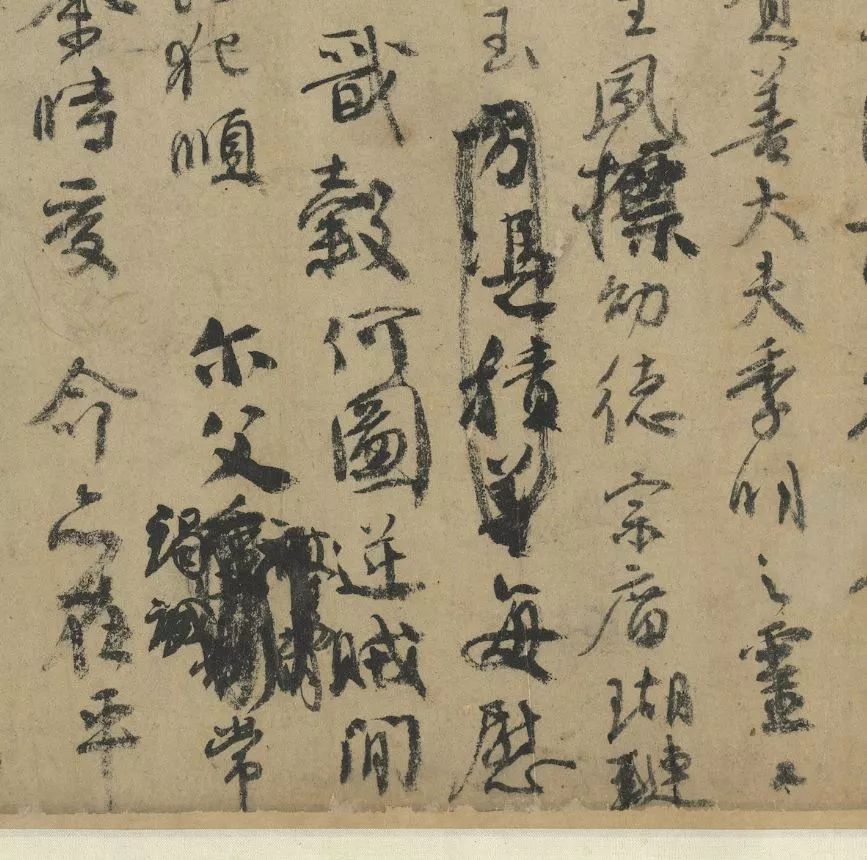 善大夫季明之靈曰
生夙標幼德宗廟瑚璉
玉方憑積善每慰
戩穀何圖逆賊閒
犯順尓父竭誠常
余時受命亦在平